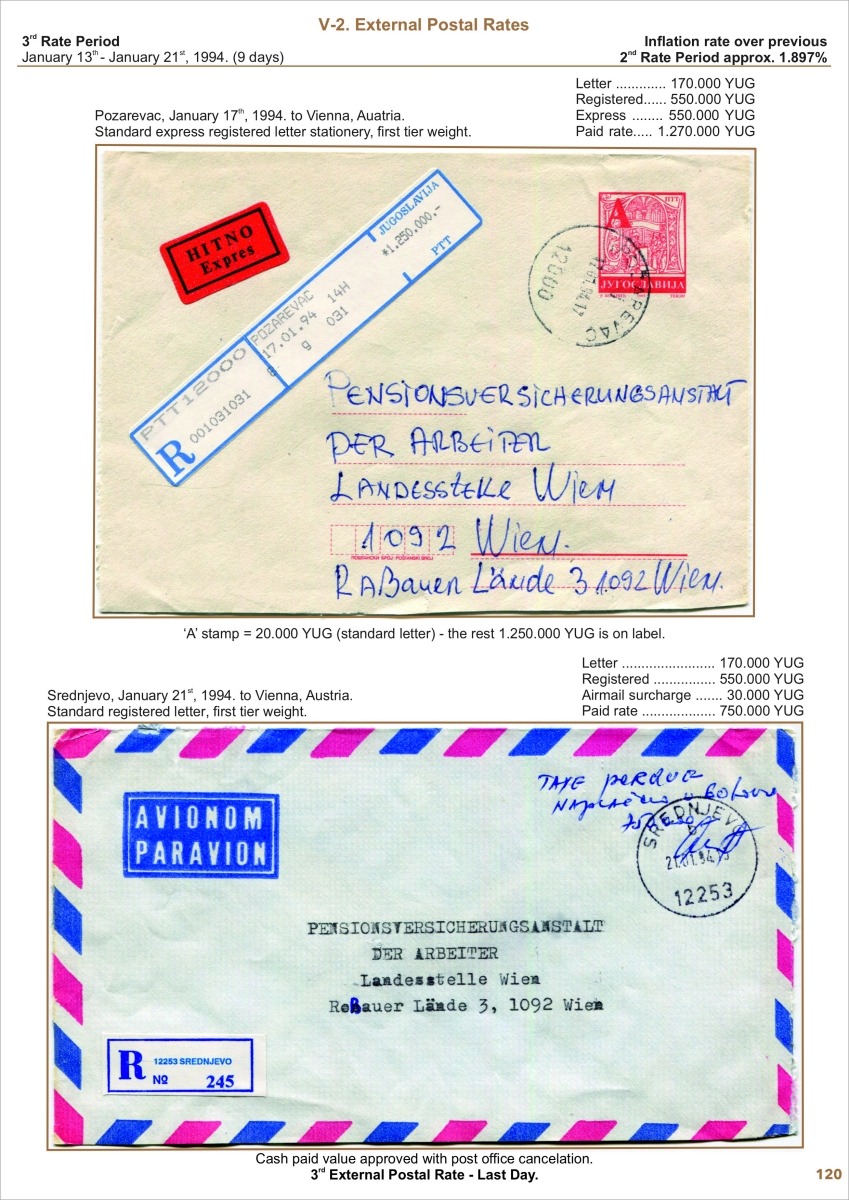 V-2. External Postal Rates
3rd Rate Period
January 13th - January 21st, 1994. (9 days)
Inflation rate over previous
2nd Rate Period approx. 1.897%
Letter ............. 170.000 YUG
Registered...... 550.000 YUG
Express ........ 550.000 YUG
Paid rate..... 1.270.000 YUG
Pozarevac, January 17th, 1994. to Vienna, Auatria.
Standard express registered letter stationery, first tier weight.
HITNO
Expres
JUGOSLAVIJA
*1.250.000.-
PTT
POZAREVAC
17.01.94 14H
g 031
PTT12000
R 001031031
A
PTT
ЈУГОСЛАВИЈА
12000
PENSIONSVERSICHERUNGSANSTALT
DER ARBEITER
LANDESSTELLE Wien
1092 Wien.
Raßauer Lände 3 1092 Wien.
'A' stamp = 20.000 YUG (standard letter) - the rest 1.250.000 YUG is on label.
Letter ........................ 170.000 YUG
Registered ................ 550.000 YUG
Airmail surcharge ....... 30.000 YUG
Paid rate ................... 750.000 YUG
Srednjevo, January 21st, 1994. to Vienna, Austria.
Standard registered letter, first tier weight.
TAXE PERQUE
AVIONOM
PARAVION
SREDNJEVO
12253
PENSIONSVERSICHERUNGSANSTALT
DER ARBEITER
Landesstelle Wien
Roßauer Lände 3, 1092 Wien
R 12253 SREDNJEVO
No 245
Cash paid value approved with post office cancelation.
3rd External Postal Rate - Last Day.
120